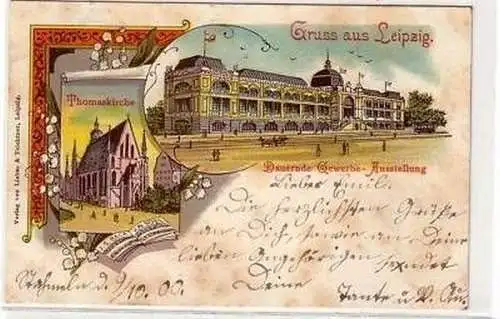 Gruss aus Leipzig.
Thomaskirche
Dauernde Gewerbe-Ausstellung
Verlag von Liebes & Teichtner, Leipzig.
Lieber Emil.
Die herzlichsten Grüße
an Dich, sowie an Deine
lieben Angehörigen sendet
Deine Tante u. O.
Stahmeln d. 9/10.00.